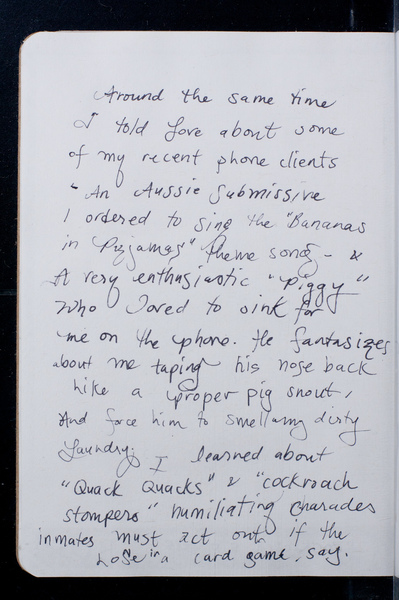 Around the same time
I told Jove about some
of my recent phone clients
"An Aussie Submissive
I ordered to sing the "Bananas
in Pyjamas" theme song - &
A very enthusiastic "piggy"
who loved to oink for
me on the phone. He fantasizes
about me taping his nose back
like a proper pig snout,
And force him to smell my dirty
Laundry. I learned about
"Quack Quacks" & "cockroach
stompers" humiliating charades
inmates must act out if the
lose in a card game, say.